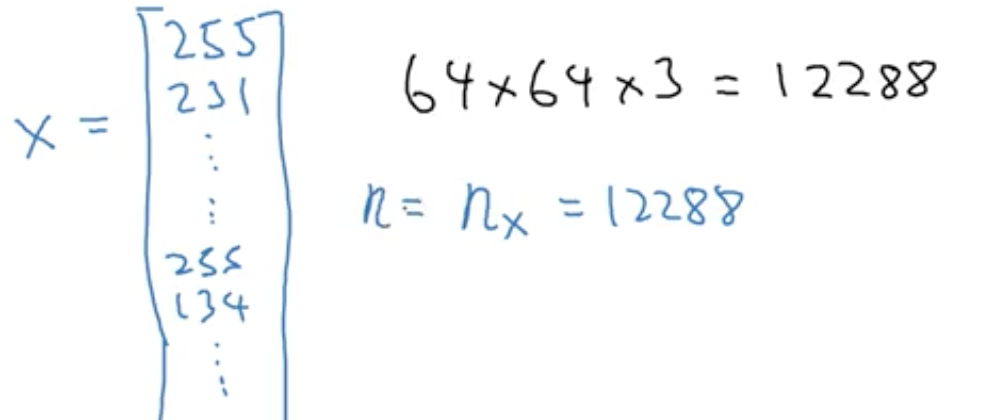 x =
255
231
⋮
⋮
255
134
⋮
64×64×3 = 12288
n = nₓ = 12288